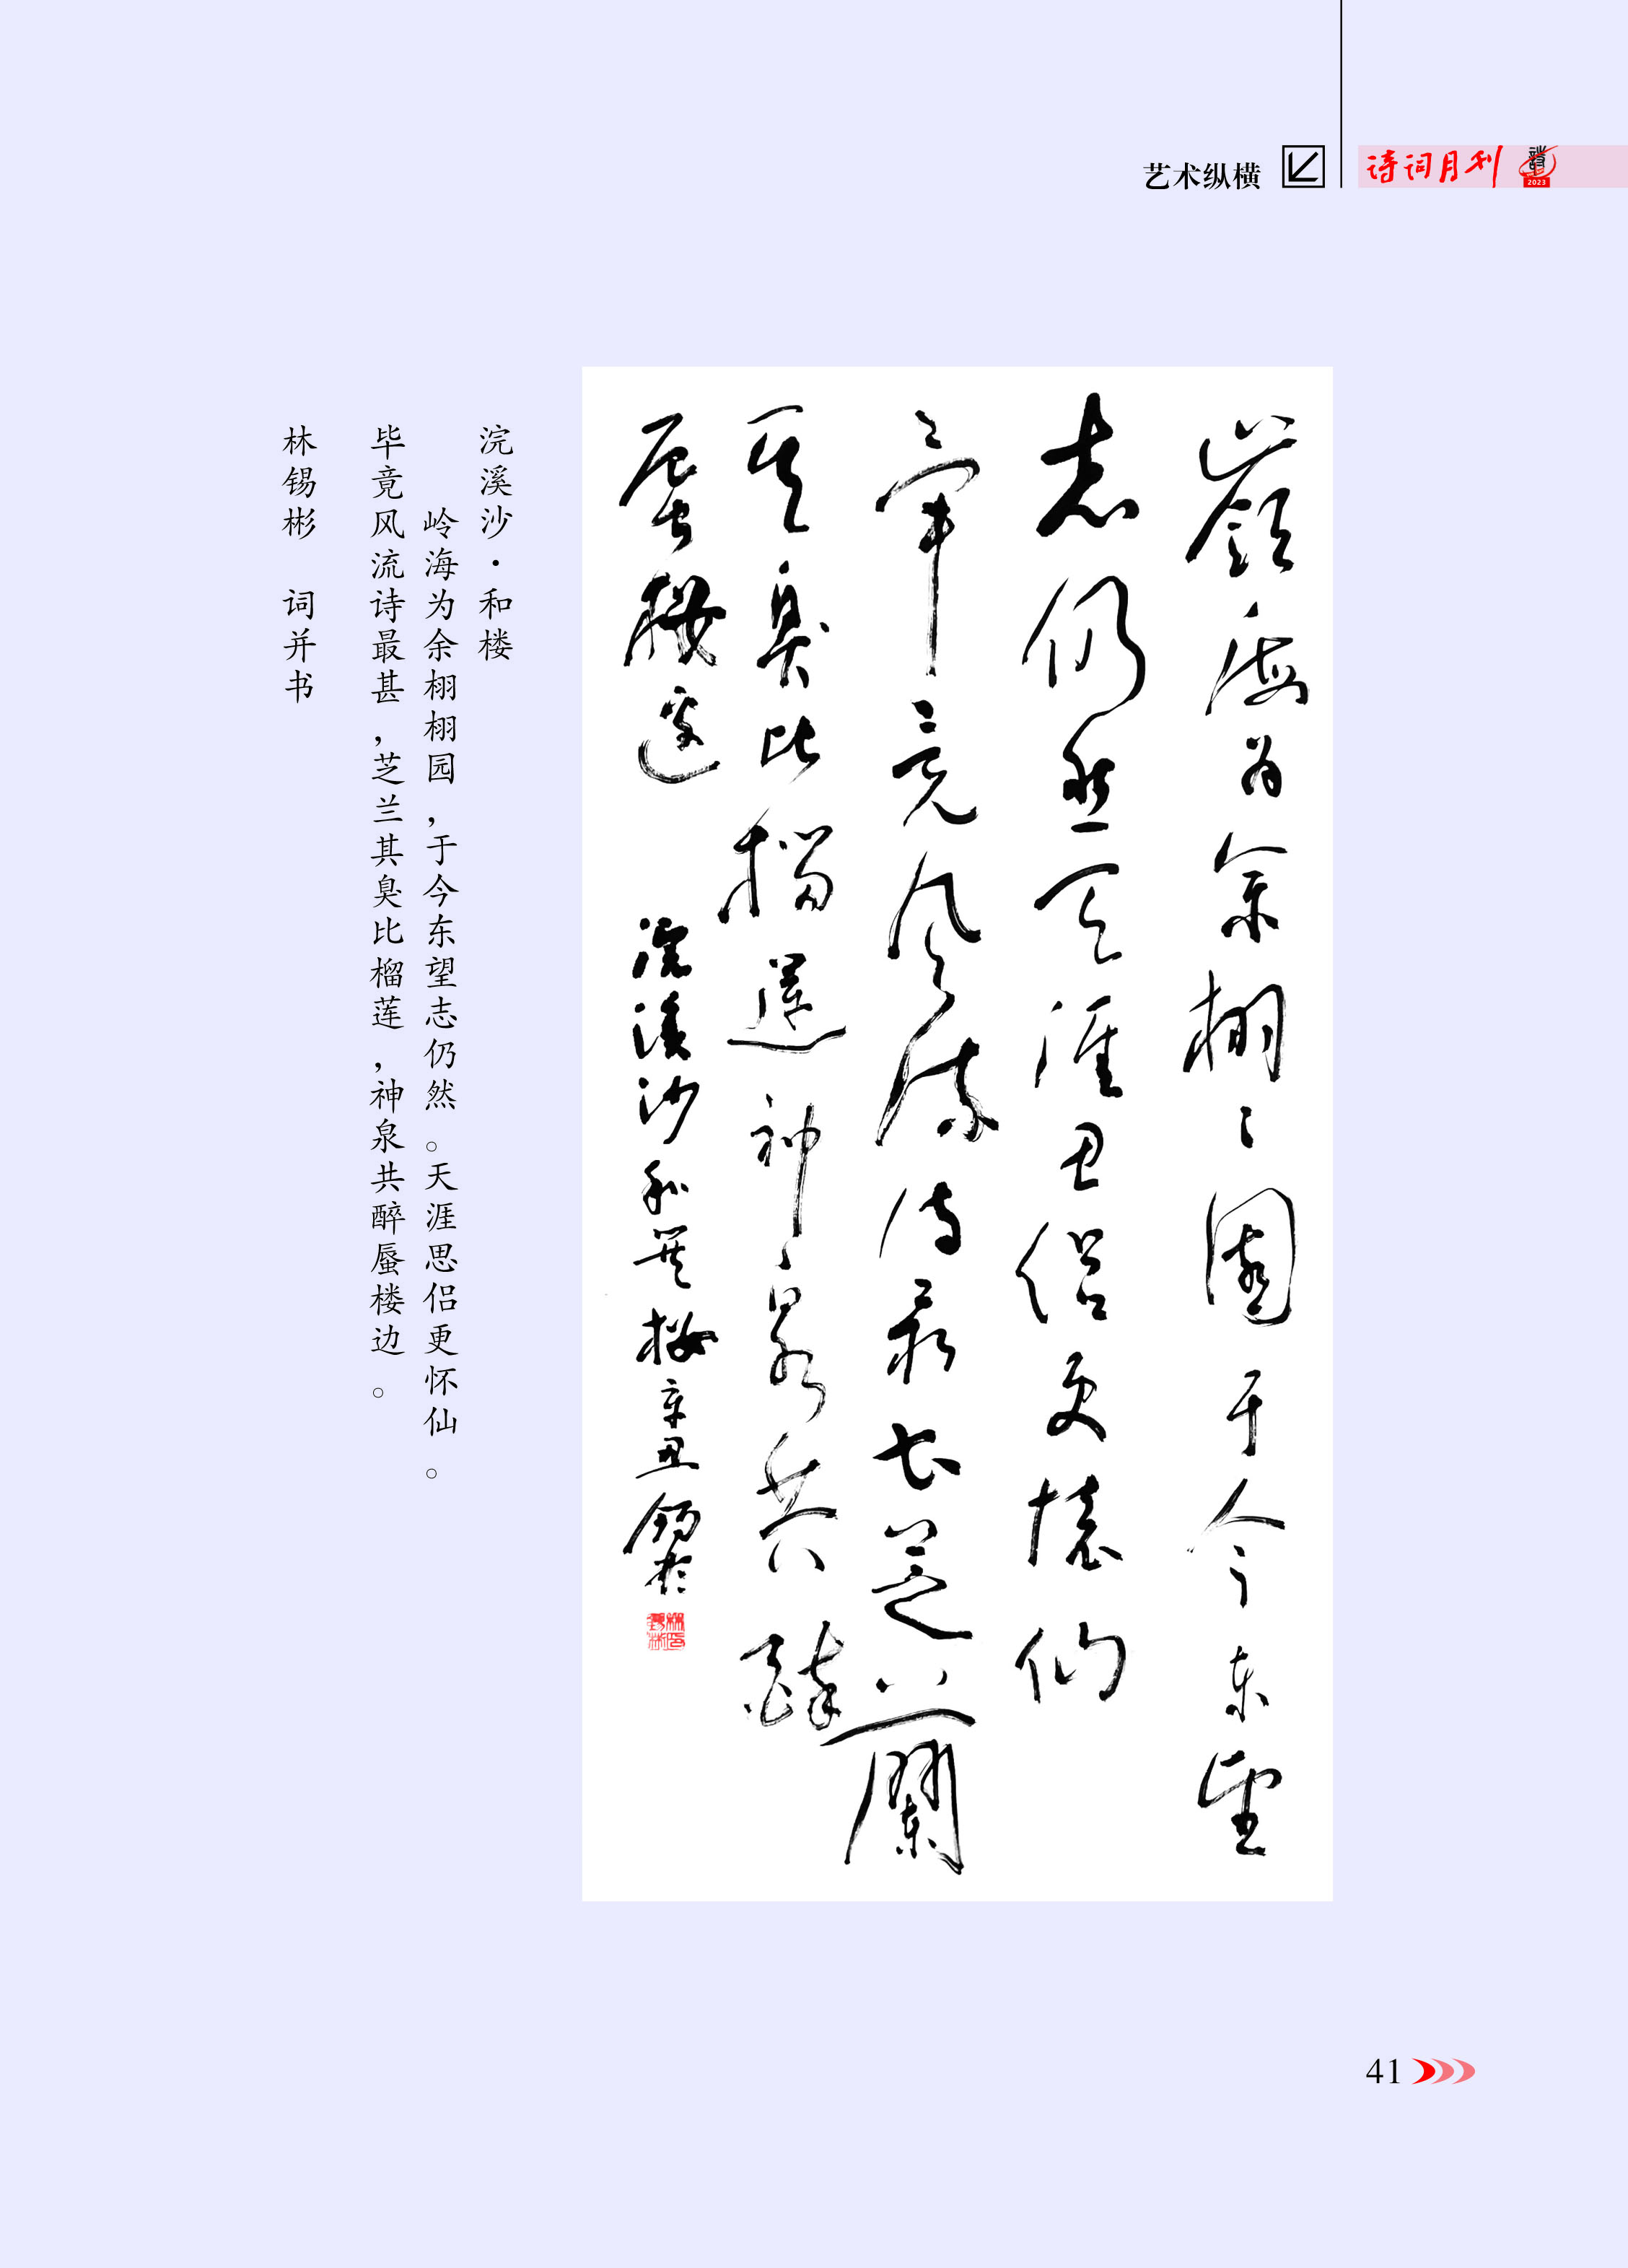 艺术纵横
诗词月刊
2023
嶺海为余栩々園于今东望
志仍然天涯思侣更懷仙
毕竟风流诗最甚芝蘭
其臭比榴莲神泉共醉
蜃楼边
浣溪沙和
楼辛丑锡彬
浣溪沙·和楼
岭海为余栩栩园，于今东望志仍然。天涯思侣更怀仙。
毕竟风流诗最甚，芝兰其臭比榴莲，神泉共醉蜃楼边。
林锡彬 词并书
41